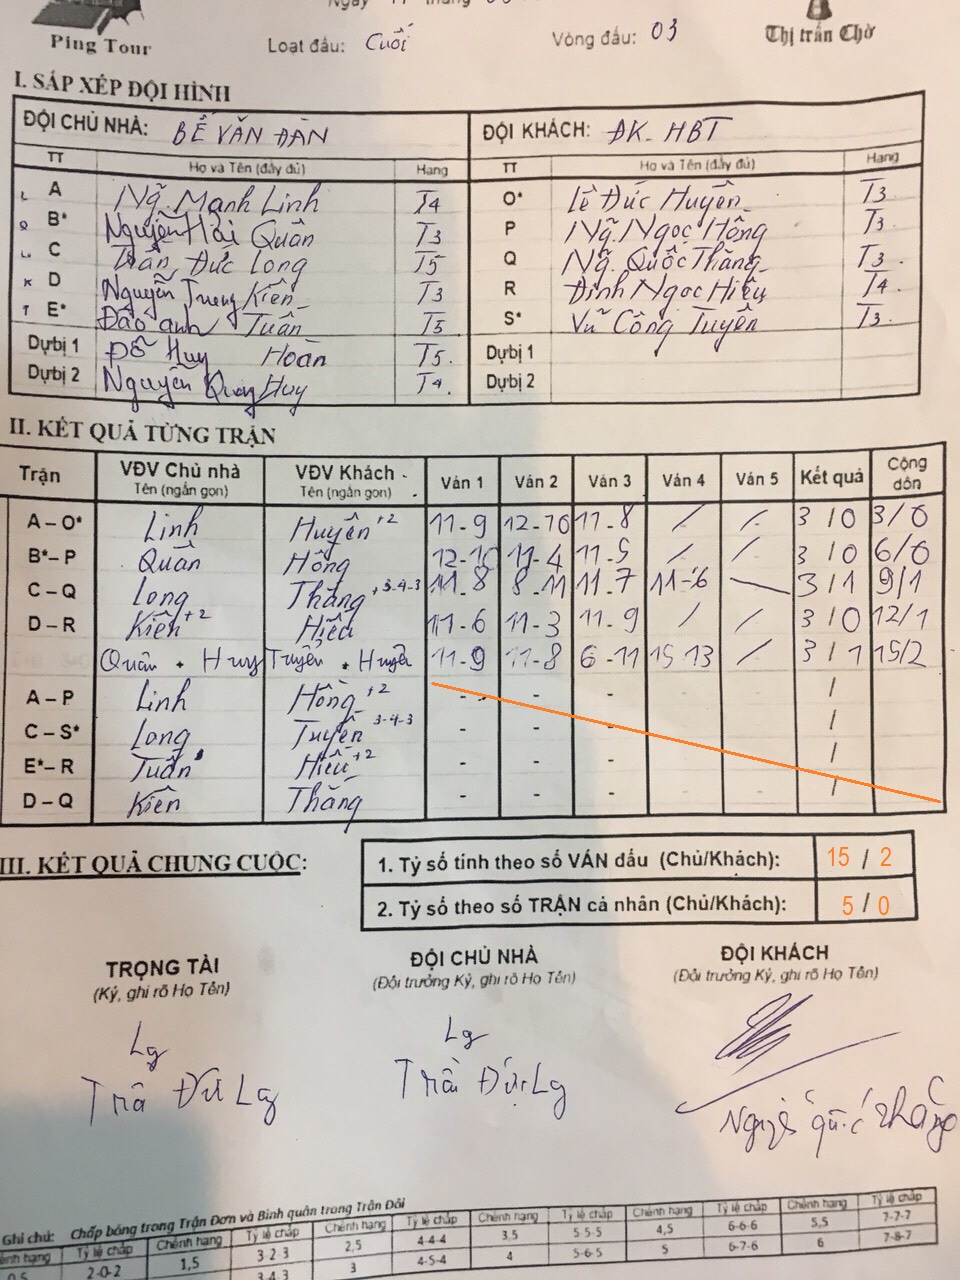 Ping Tour
Loạt đấu: Cuối
Vòng đấu: 03
Thị trấn Chờ
I. SẮP XẾP ĐỘI HÌNH
ĐỘI CHỦ NHÀ: BẾ VĂN ĐÀN ĐỘI KHÁCH: ĐK-HBT
TT Họ và Tên (đầy đủ) Hạng TT Họ và Tên (đầy đủ) Hạng
A Ng~. Mạnh Linh T4 O* Lê Đức Huyên T3
B* Nguyễn Hải Quân T3 P Ng~. Ngọc Hồng T3
C Trần Đức Long T5 Q Ng~. Quốc Thắng T3
D Nguyễn Trung Kiên T3 R Đinh Ngọc Hiệu T4
E* Đào anh Tuấn T5 S* Vũ Công Tuyên T3
Dự bị 1 Đỗ Huy Hoàn T5 Dự bị 1
Dự bị 2 Nguyễn Quang Huy T4 Dự bị 2
II. KẾT QUẢ TỪNG TRẬN
Trận VĐV Chủ nhà Tên (ngắn gọn) VĐV Khách Tên (ngắn gọn) Ván 1 Ván 2 Ván 3 Ván 4 Ván 5 Kết quả Cộng dồn
A – O* Linh Huyên +2 11-9 12-10 11-8 / / 3 / 0 3/0
B* – P Quân Hồng 12-10 11-4 11-5 / / 3 / 0 6/0
C – Q Long Thắng +3-4-3 11-8 8-11 11-7 11-6 3 / 1 9/1
D – R Kiên +2 Hiệu 11-6 11-3 11-9 / / 3 / 0 12/1
Quân + Huy Tuyên + Huyên 11-9 11-8 6-11 15-13 / 3 / 1 15/2
A – P Linh Hồng +2 - - - - - /
C – S* Long Tuyên 3-4-3 - - - - - /
E* – R Tuấn Hiệu +2 - - - - - /
D – Q Kiên Thắng - - - - - /
III. KẾT QUẢ CHUNG CUỘC:
1. Tỷ số tính theo số VÁN đấu (Chủ/Khách): 15 / 2
2. Tỷ số theo số TRẬN cá nhân (Chủ/Khách): 5 / 0
TRỌNG TÀI ĐỘI CHỦ NHÀ ĐỘI KHÁCH
(Ký, ghi rõ Họ Tên) (Đội trưởng Ký, ghi rõ Họ Tên) (Đội trưởng Ký, ghi rõ Họ Tên)
Lg Lg
Ghi chú: Chấp bóng trong Trận Đơn và Bình quân trong Trận Đôi
Chênh hạng Tỷ lệ chấp Chênh hạng Tỷ lệ chấp Chênh hạng Tỷ lệ chấp Chênh hạng Tỷ lệ chấp Chênh hạng Tỷ lệ chấp Chênh hạng Tỷ lệ chấp
0,5 2-0-2 1,5 3-2-3 2,5 4-4-4 3,5 5-5-5 4,5 6-6-6 5,5 7-7-7
3-4-3 3 4-5-4 4 5-6-5 5 6-7-6 6 7-8-7